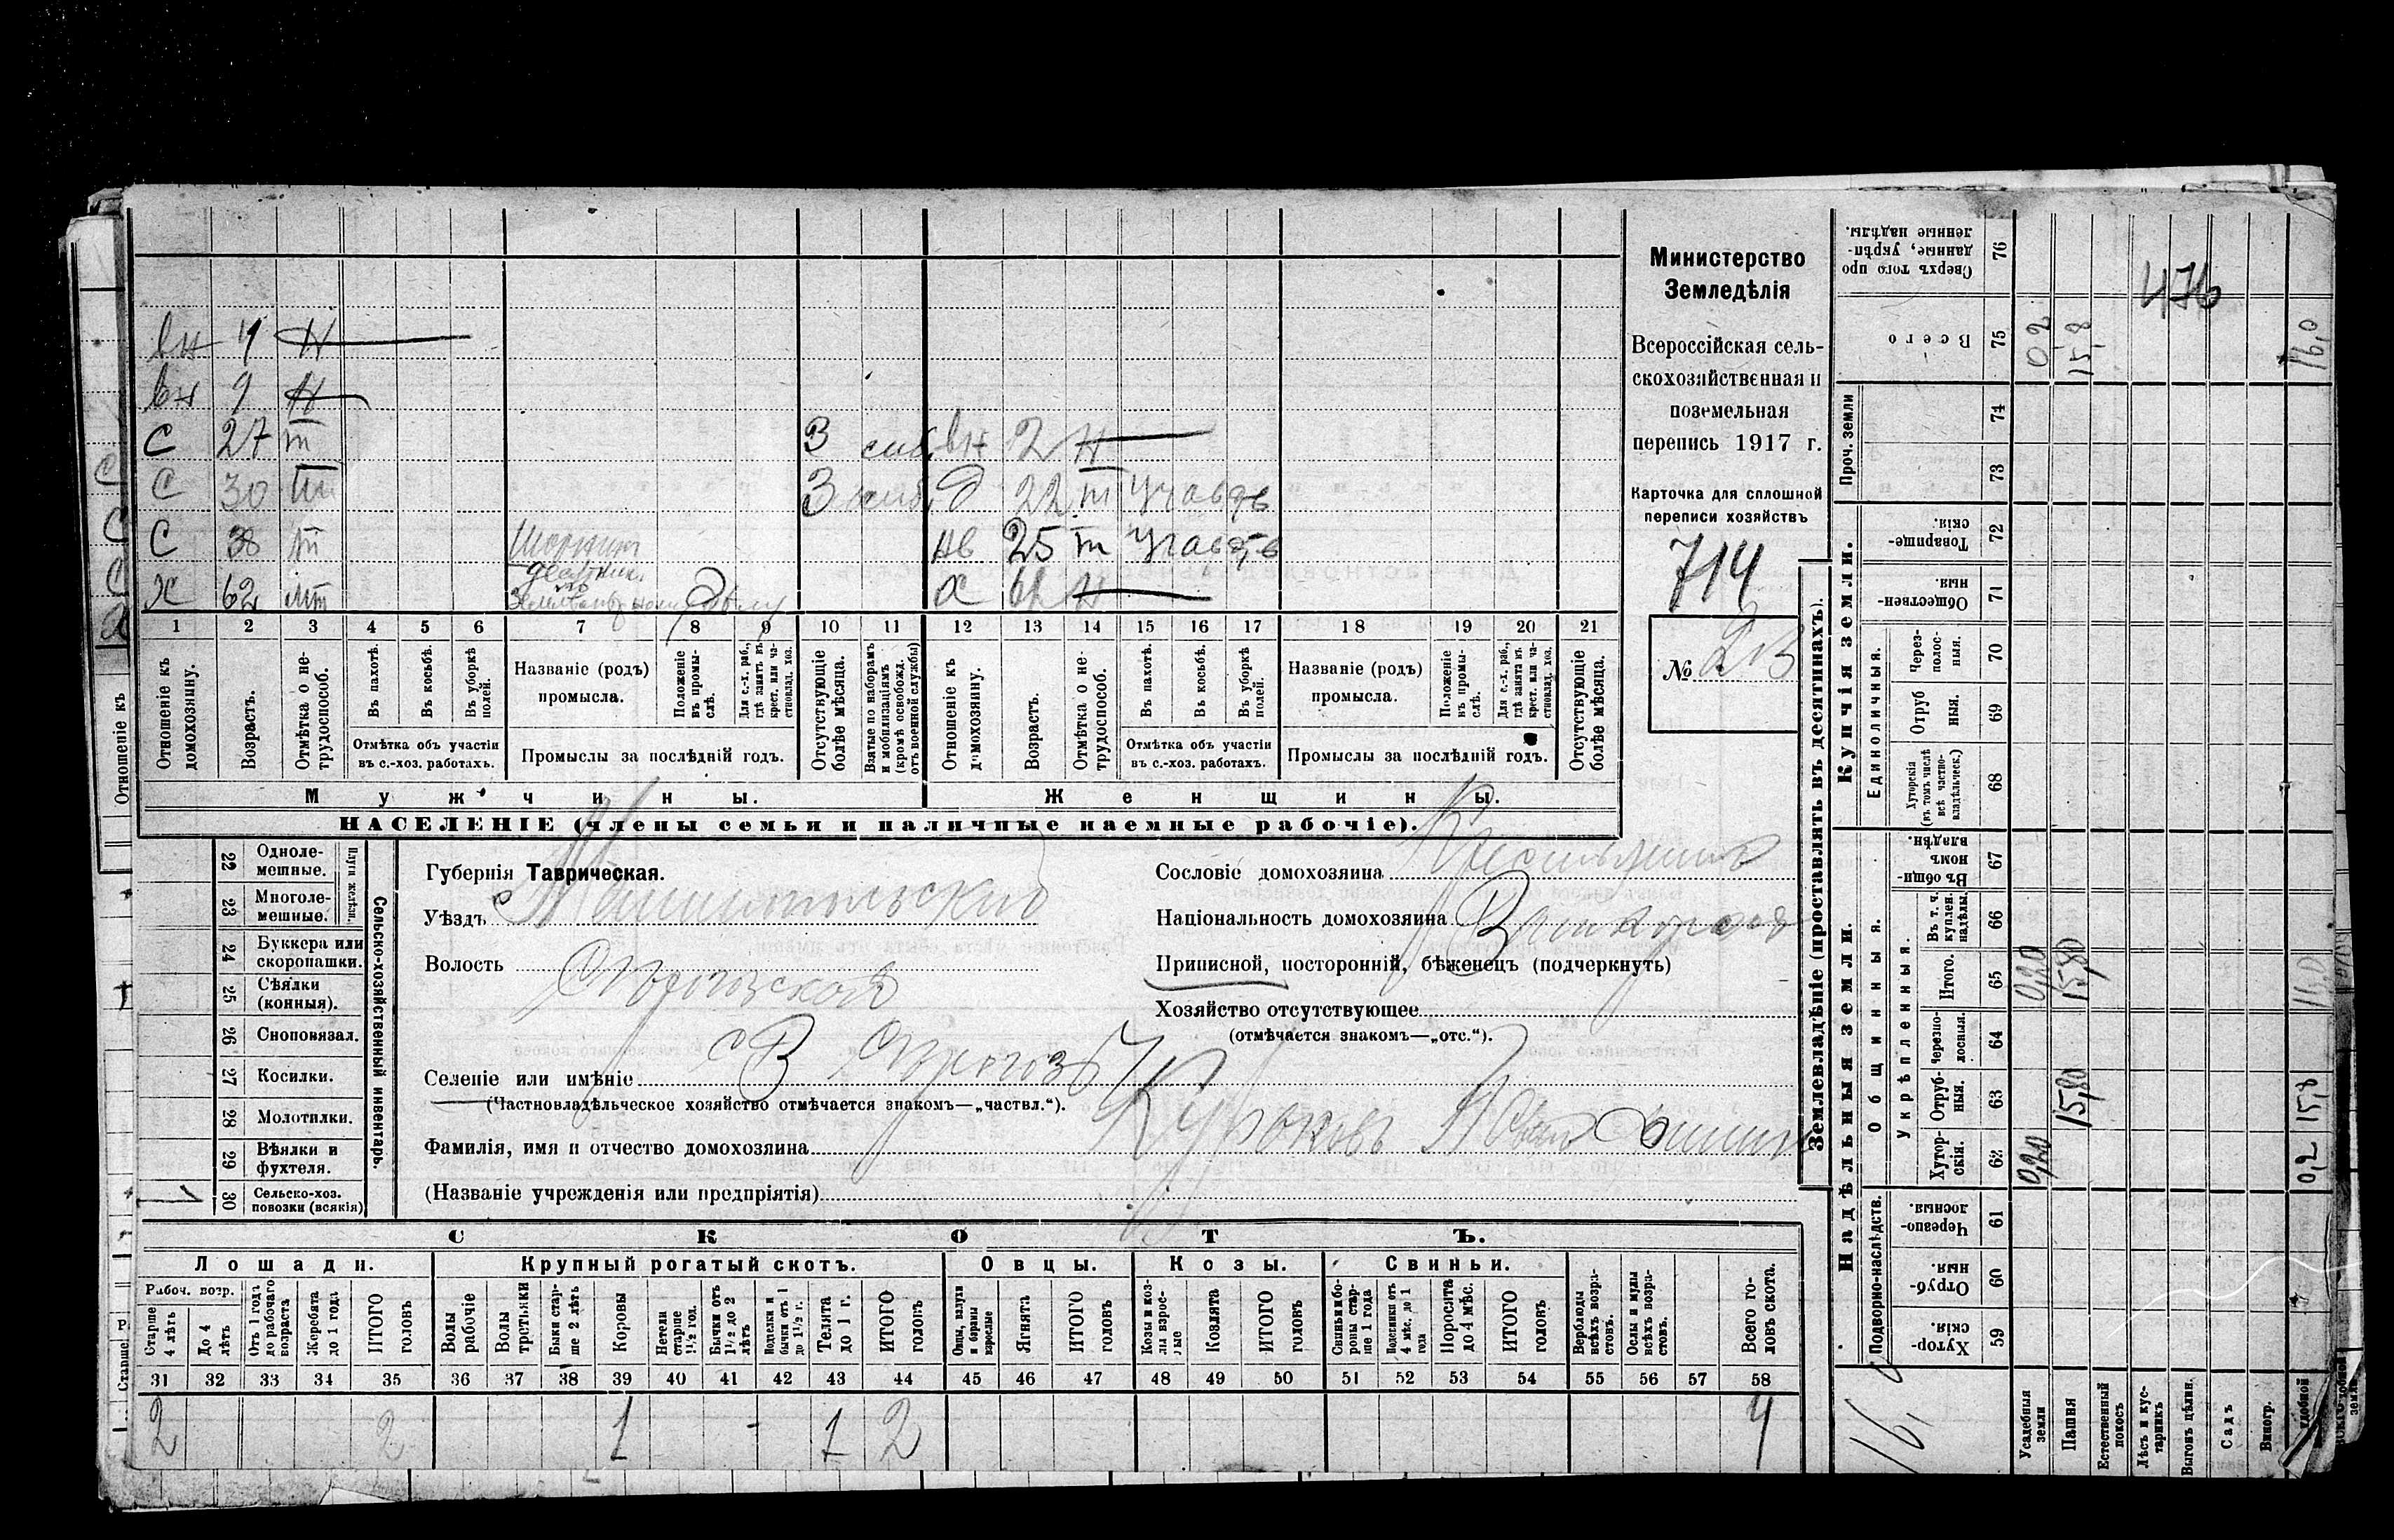 вн 4 н
вн 9 н
С 27 m
3
вн 2 н
С 30 m
3
д 22 m
С 38 m
нв 25 m
х 62
х 61 н
1 2 3 4 5 6 7 8 9 10 11 12 13 14 15 16 17 18 19 20 21
Отношеніе къ домохозяину.
Возрастъ.
Отмѣтка о нетрудоспособ.
Въ пахотѣ.
Въ косьбѣ.
Въ уборкѣ полей.
Отмѣтка объ участіи
въ с.-хоз. работахъ.
Названіе (родъ)
промысла.
Положеніе въ промыслѣ.
Для с.-х. раб., гдѣ занятъ въ крест. или частновлад. хоз.
Промыслы за послѣдній годъ.
Отсутствующіе болѣе мѣсяца.
Взятые по наборамъ и мобилизаціямъ (кромѣ освобожд. отъ военной службы)
Отношеніе къ домохозяину.
Возрастъ.
Отмѣтка о нетрудоспособ.
Въ пахотѣ.
Въ косьбѣ.
Въ уборкѣ полей.
Отмѣтка объ участіи
въ с.-хоз. работахъ.
Названіе (родъ)
промысла.
Положеніе въ промыслѣ.
Для с.-х. раб., гдѣ занята въ крест. или частновлад. хоз.
Промыслы за послѣдній годъ.
Отсутствующіе болѣе мѣсяца.
Мужчины.
Женщины.
НАСЕЛЕНІЕ (члены семьи и наличные наемные рабочіе).
Министерство
Земледѣлія
Всероссійская сель-
скохозяйственная и
поземельная
перепись 1917 г.
Карточка для сплошной
переписи хозяйствъ
714
№ 23
22 Одноле-
мешные.
23 Многоле-
мешные.
Плуги желѣзн.
24 Буккера или
скоропашки.
25 Сѣялки
(конныя).
26 Сноповязал.
27 Косилки.
28 Молотилки.
29 Вѣялки и
фухтеля.
30 Сельско-хоз.
повозки (всякія)
1
Сельско-хозяйственный инвентарь.
Губернія Таврическая.
Уѣздъ Мелитопольский
Волость
Селеніе или имѣніе с В
(Частновладѣльческое хозяйство отмѣчается знакомъ—„частвл.“).
Фамилія, имя и отчество домохозяина
(Названіе учрежденія или предпріятія)
Сословіе домохозяина Крестьянинъ
Національность домохозяина
Приписной, посторонній, бѣженецъ (подчеркнуть)
Хозяйство отсутствующее
(отмѣчается знакомъ—„отс.“).
СКОТЪ.
Лошади.
Крупный рогатый скотъ.
Овцы.
Козы.
Свиньи.
Рабоч. возр.
Старше 4 лѣтъ
До 4 лѣтъ
Отъ 1 года до рабочаго возраста
Жеребята до 1 года
ИТОГО головъ
Волы рабочіе
Волы третьяки
Быки старше 2 лѣтъ
Коровы
Нетели старше 1½ год.
Бычки отъ 1½ до 2 лѣтъ
Подтелки и бычки отъ 1 до 1½ г.
Телята до 1 г.
ИТОГО головъ
Овцы, валухи и бараны взрослые
Ягнята
ИТОГО головъ
Козы и козлы взрослые
Козлята
ИТОГО головъ
Свиньи и боровы старше 1 года
Подсвинки отъ 4 мѣс. до 1 года
Поросята до 4 мѣс.
ИТОГО головъ
Верблюды всѣхъ возрастовъ.
Ослы и мулы всѣхъ возрастовъ.
Всего головъ скота.
31 32 33 34 35 36 37 38 39 40 41 42 43 44 45 46 47 48 49 50 51 52 53 54 55 56 57 58
2 2 1 1 2 4
Землевладѣніе (проставлять въ десятинахъ).
Сверхъ того проданные, укрѣпленные надѣлы.
76
476
Всего
75
0,2
15,8
16,0
Проч. земли
74
73
Купчія земли.
Товарищескія.
72
Общественныя.
71
Единоличныя.
Черезполосныя.
70
Отрубныя.
69
Хуторскія (въ томъ числѣ всѣ частновладѣльческ.)
68
Надѣльныя земли.
Общинныя.
Въ общинномъ владѣн.
67
Укрѣпленныя.
Въ т. ч. куплен. надѣлы.
66
Итого.
65
0,20
15,80
16,0
Черезполосныя.
64
Отрубныя.
63
15,80
15,8
Хуторскія.
62
0,20
0,2
Подворно-наслѣдств.
Черезполосныя.
61
Отрубныя.
60
Хуторскія.
59
16,0
Усадебныя земли
Пашня
Естественный покосъ
Лѣсъ и кустарникъ
Выгонъ цѣлин.
Садъ
Виногр.